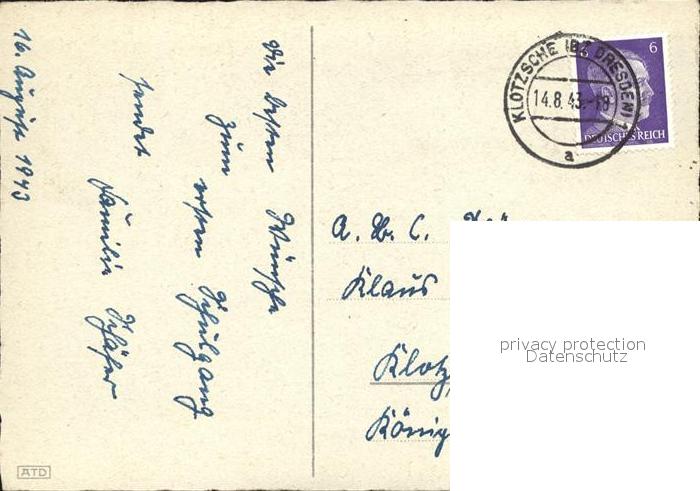 Die besten Wünsche
zum
ersten Schulgang
sendet
Familie Schäfer
16. August 1943
KLOTZSCHE (BZ DRESDEN) 1
14.8.43.-18
a
6
DEUTSCHES REICH
A. B. C.
Klaus
Klotz
König
privacy protection
Datenschutz
ATD